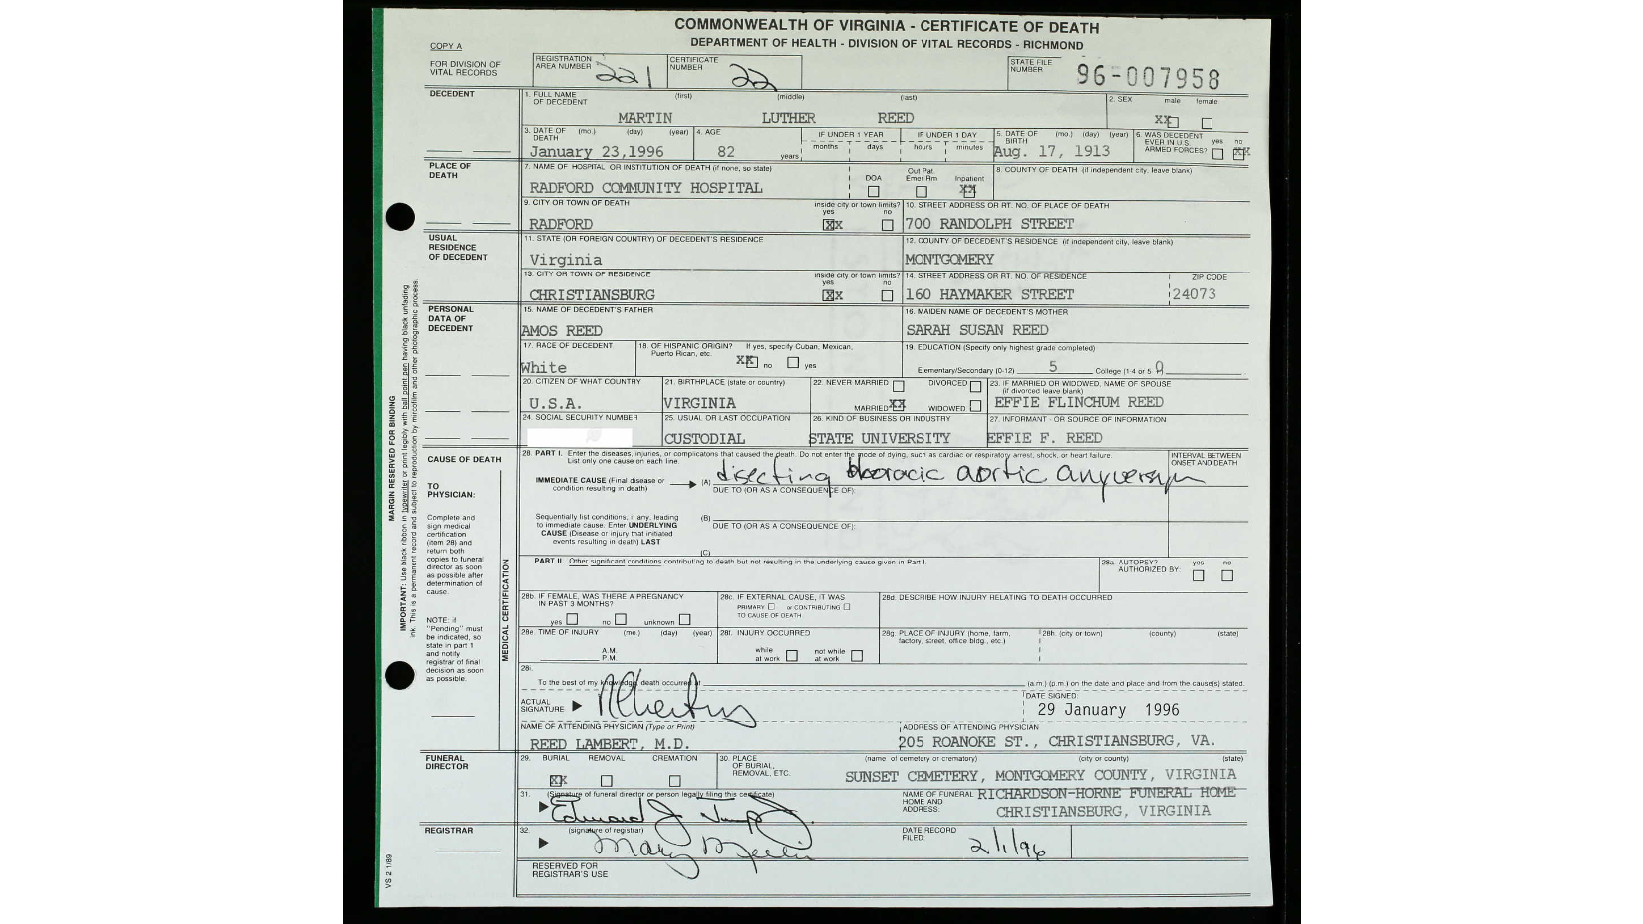 COMMONWEALTH OF VIRGINIA - CERTIFICATE OF DEATH
DEPARTMENT OF HEALTH - DIVISION OF VITAL RECORDS - RICHMOND
COPY A
FOR DIVISION OF VITAL RECORDS
REGISTRATION AREA NUMBER 221
CERTIFICATE NUMBER 22
STATE FILE NUMBER 96-007958
DECEDENT
1. FULL NAME OF DECEDENT (first) (middle) (last)
MARTIN LUTHER REED
2. SEX male female
XX
3. DATE OF DEATH (mo.) (day) (year)
January 23,1996
4. AGE
82 years
IF UNDER 1 YEAR months days
IF UNDER 1 DAY hours minutes
5. DATE OF BIRTH (mo.) (day) (year)
Aug. 17, 1913
6. WAS DECEDENT EVER IN U.S. ARMED FORCES? yes no
XX
PLACE OF DEATH
7. NAME OF HOSPITAL OR INSTITUTION OF DEATH (if none, so state)
RADFORD COMMUNITY HOSPITAL
DOA Out Pat. Emer Rm Inpatient
XX
8. COUNTY OF DEATH (if independent city, leave blank)
9. CITY OR TOWN OF DEATH
RADFORD
inside city or town limits? yes no
XX
10. STREET ADDRESS OR RT. NO. OF PLACE OF DEATH
700 RANDOLPH STREET
USUAL RESIDENCE OF DECEDENT
11. STATE (OR FOREIGN COUNTRY) OF DECEDENT'S RESIDENCE
Virginia
12. COUNTY OF DECEDENT'S RESIDENCE (if independent city, leave blank)
MONTGOMERY
13. CITY OR TOWN OF RESIDENCE
CHRISTIANSBURG
inside city or town limits? yes no
XX
14. STREET ADDRESS OR RT. NO. OF RESIDENCE
160 HAYMAKER STREET
ZIP CODE
24073
PERSONAL DATA OF DECEDENT
15. NAME OF DECEDENT'S FATHER
AMOS REED
16. MAIDEN NAME OF DECEDENT'S MOTHER
SARAH SUSAN REED
17. RACE OF DECEDENT
White
18. OF HISPANIC ORIGIN? If yes, specify Cuban, Mexican, Puerto Rican, etc.
XX no yes
19. EDUCATION (Specify only highest grade completed)
Elementary/Secondary (0-12) 5 College (1-4 or 5 0
20. CITIZEN OF WHAT COUNTRY
U.S.A.
21. BIRTHPLACE (state or country)
VIRGINIA
22. NEVER MARRIED DIVORCED
MARRIED XX WIDOWED
23. IF MARRIED OR WIDOWED, NAME OF SPOUSE (if divorced leave blank)
EFFIE FLINCHUM REED
24. SOCIAL SECURITY NUMBER
25. USUAL OR LAST OCCUPATION
CUSTODIAL
26. KIND OF BUSINESS OR INDUSTRY
STATE UNIVERSITY
27. INFORMANT - OR SOURCE OF INFORMATION
EFFIE F. REED
CAUSE OF DEATH
TO PHYSICIAN:
Complete and sign medical certification (item 28) and return both copies to funeral director as soon as possible after determination of cause.
NOTE: if "Pending" must be indicated, so state in part 1 and notify registrar of final decision as soon as possible.
MEDICAL CERTIFICATION
28. PART I. Enter the diseases, injuries, or complications that caused the death. Do not enter the mode of dying, such as cardiac or respiratory arrest, shock, or heart failure.
List only one cause on each line.
INTERVAL BETWEEN ONSET AND DEATH
IMMEDIATE CAUSE (Final disease or condition resulting in death)
(A) disecting thoracic aortic anyversym
DUE TO (OR AS A CONSEQUENCE OF):
Sequentially list conditions, if any, leading to immediate cause. Enter UNDERLYING CAUSE (Disease or injury that initiated events resulting in death) LAST
(B)
DUE TO (OR AS A CONSEQUENCE OF):
(C)
PART II Other significant conditions contributing to death but not resulting in the underlying cause given in Part I.
28a. AUTOPSY? AUTHORIZED BY: yes no
28b. IF FEMALE, WAS THERE A PREGNANCY IN PAST 3 MONTHS?
yes no unknown
28c. IF EXTERNAL CAUSE, IT WAS
PRIMARY or CONTRIBUTING
TO CAUSE OF DEATH
28d. DESCRIBE HOW INJURY RELATING TO DEATH OCCURRED
28e. TIME OF INJURY (mo.) (day) (year)
A.M.
P.M.
28f. INJURY OCCURRED
while at work not while at work
28g. PLACE OF INJURY (home, farm, factory, street, office bldg., etc.)
28h. (city or town) (county) (state)
28i.
To the best of my knowledge, death occurred at (a.m.) (p.m.) on the date and place and from the cause(s) stated.
ACTUAL SIGNATURE
DATE SIGNED:
29 January 1996
NAME OF ATTENDING PHYSICIAN (Type or Print)
REED LAMBERT, M.D.
ADDRESS OF ATTENDING PHYSICIAN
205 ROANOKE ST., CHRISTIANSBURG, VA.
FUNERAL DIRECTOR
29. BURIAL REMOVAL CREMATION
XX
30. PLACE OF BURIAL, REMOVAL, ETC.
(name of cemetery or crematory) (city or county) (state)
SUNSET CEMETERY, MONTGOMERY COUNTY, VIRGINIA
31. (Signature of funeral director or person legally filing this certificate)
Edward J.
NAME OF FUNERAL HOME AND ADDRESS:
RICHARDSON-HORNE FUNERAL HOME
CHRISTIANSBURG, VIRGINIA
REGISTRAR
32. (signature of registrar)
Mary
DATE RECORD FILED:
2/1/96
RESERVED FOR REGISTRAR'S USE
VS 2 1/89
MARGIN RESERVED FOR BINDING
IMPORTANT: Use black ribbon in typewriter or print legibly with ball point pen having black unfading
ink. This is a permanent record and subject to reproduction by microfilm and other photographic process.